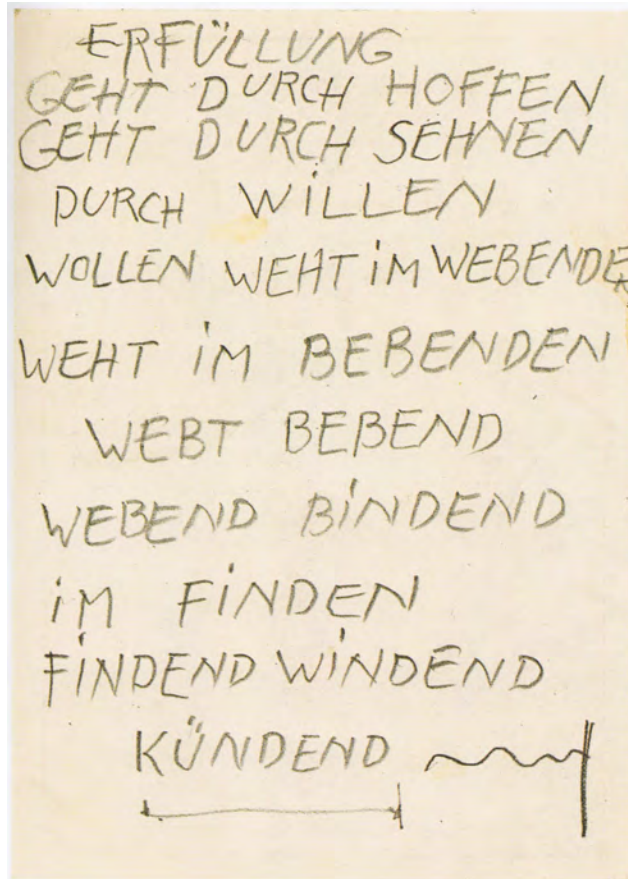 ERFÜLLUNG
GEHT DURCH HOFFEN
GEHT DURCH SEHNEN
DURCH WiLLEN
WOLLEN WEHT iM WEBENDEN
WEHT iM BEBENDEN
WEBT BEBEND
WEBEND BiNDEND
iM FiNDEN
FiNDEND WiNDEND
KÜNDEND